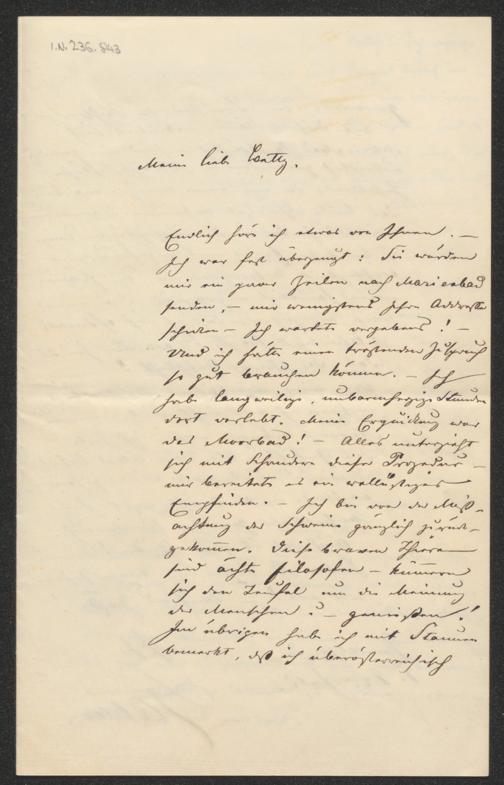 I.N. 236.843
Meine liebe
Endlich höre ich etwas von Ihnen. —
Ich war fest überzeugt: Sie würden
mir ein paar Zeilen nach Marienbad
senden, — mir wenigstens Ihre Addresse
schicken — Ich wartete vergebens! —
Und ich hätte einen tröstenden Zuspruch
so gut brauchen können. — Ich
habe langweilige, unbarmherzige Stunden
dort verlebt. Meine Erquickung war
das Moorbad! — Alles unterzieht
sich mit Schaudern dieser Prozedur —
mir bereitete es ein wollüstiges
Empfinden. — Ich bin von der Miß-
achtung der Schweine gänzlich zurück-
gekommen. Diese braven Thiere
sind ächte Filosofen — kümmern
sich den Teufel um die Meinung
der Menschen u — genießen!
Im übrigen habe ich mit Staunen
bemerkt, daß ich überösterreichisch